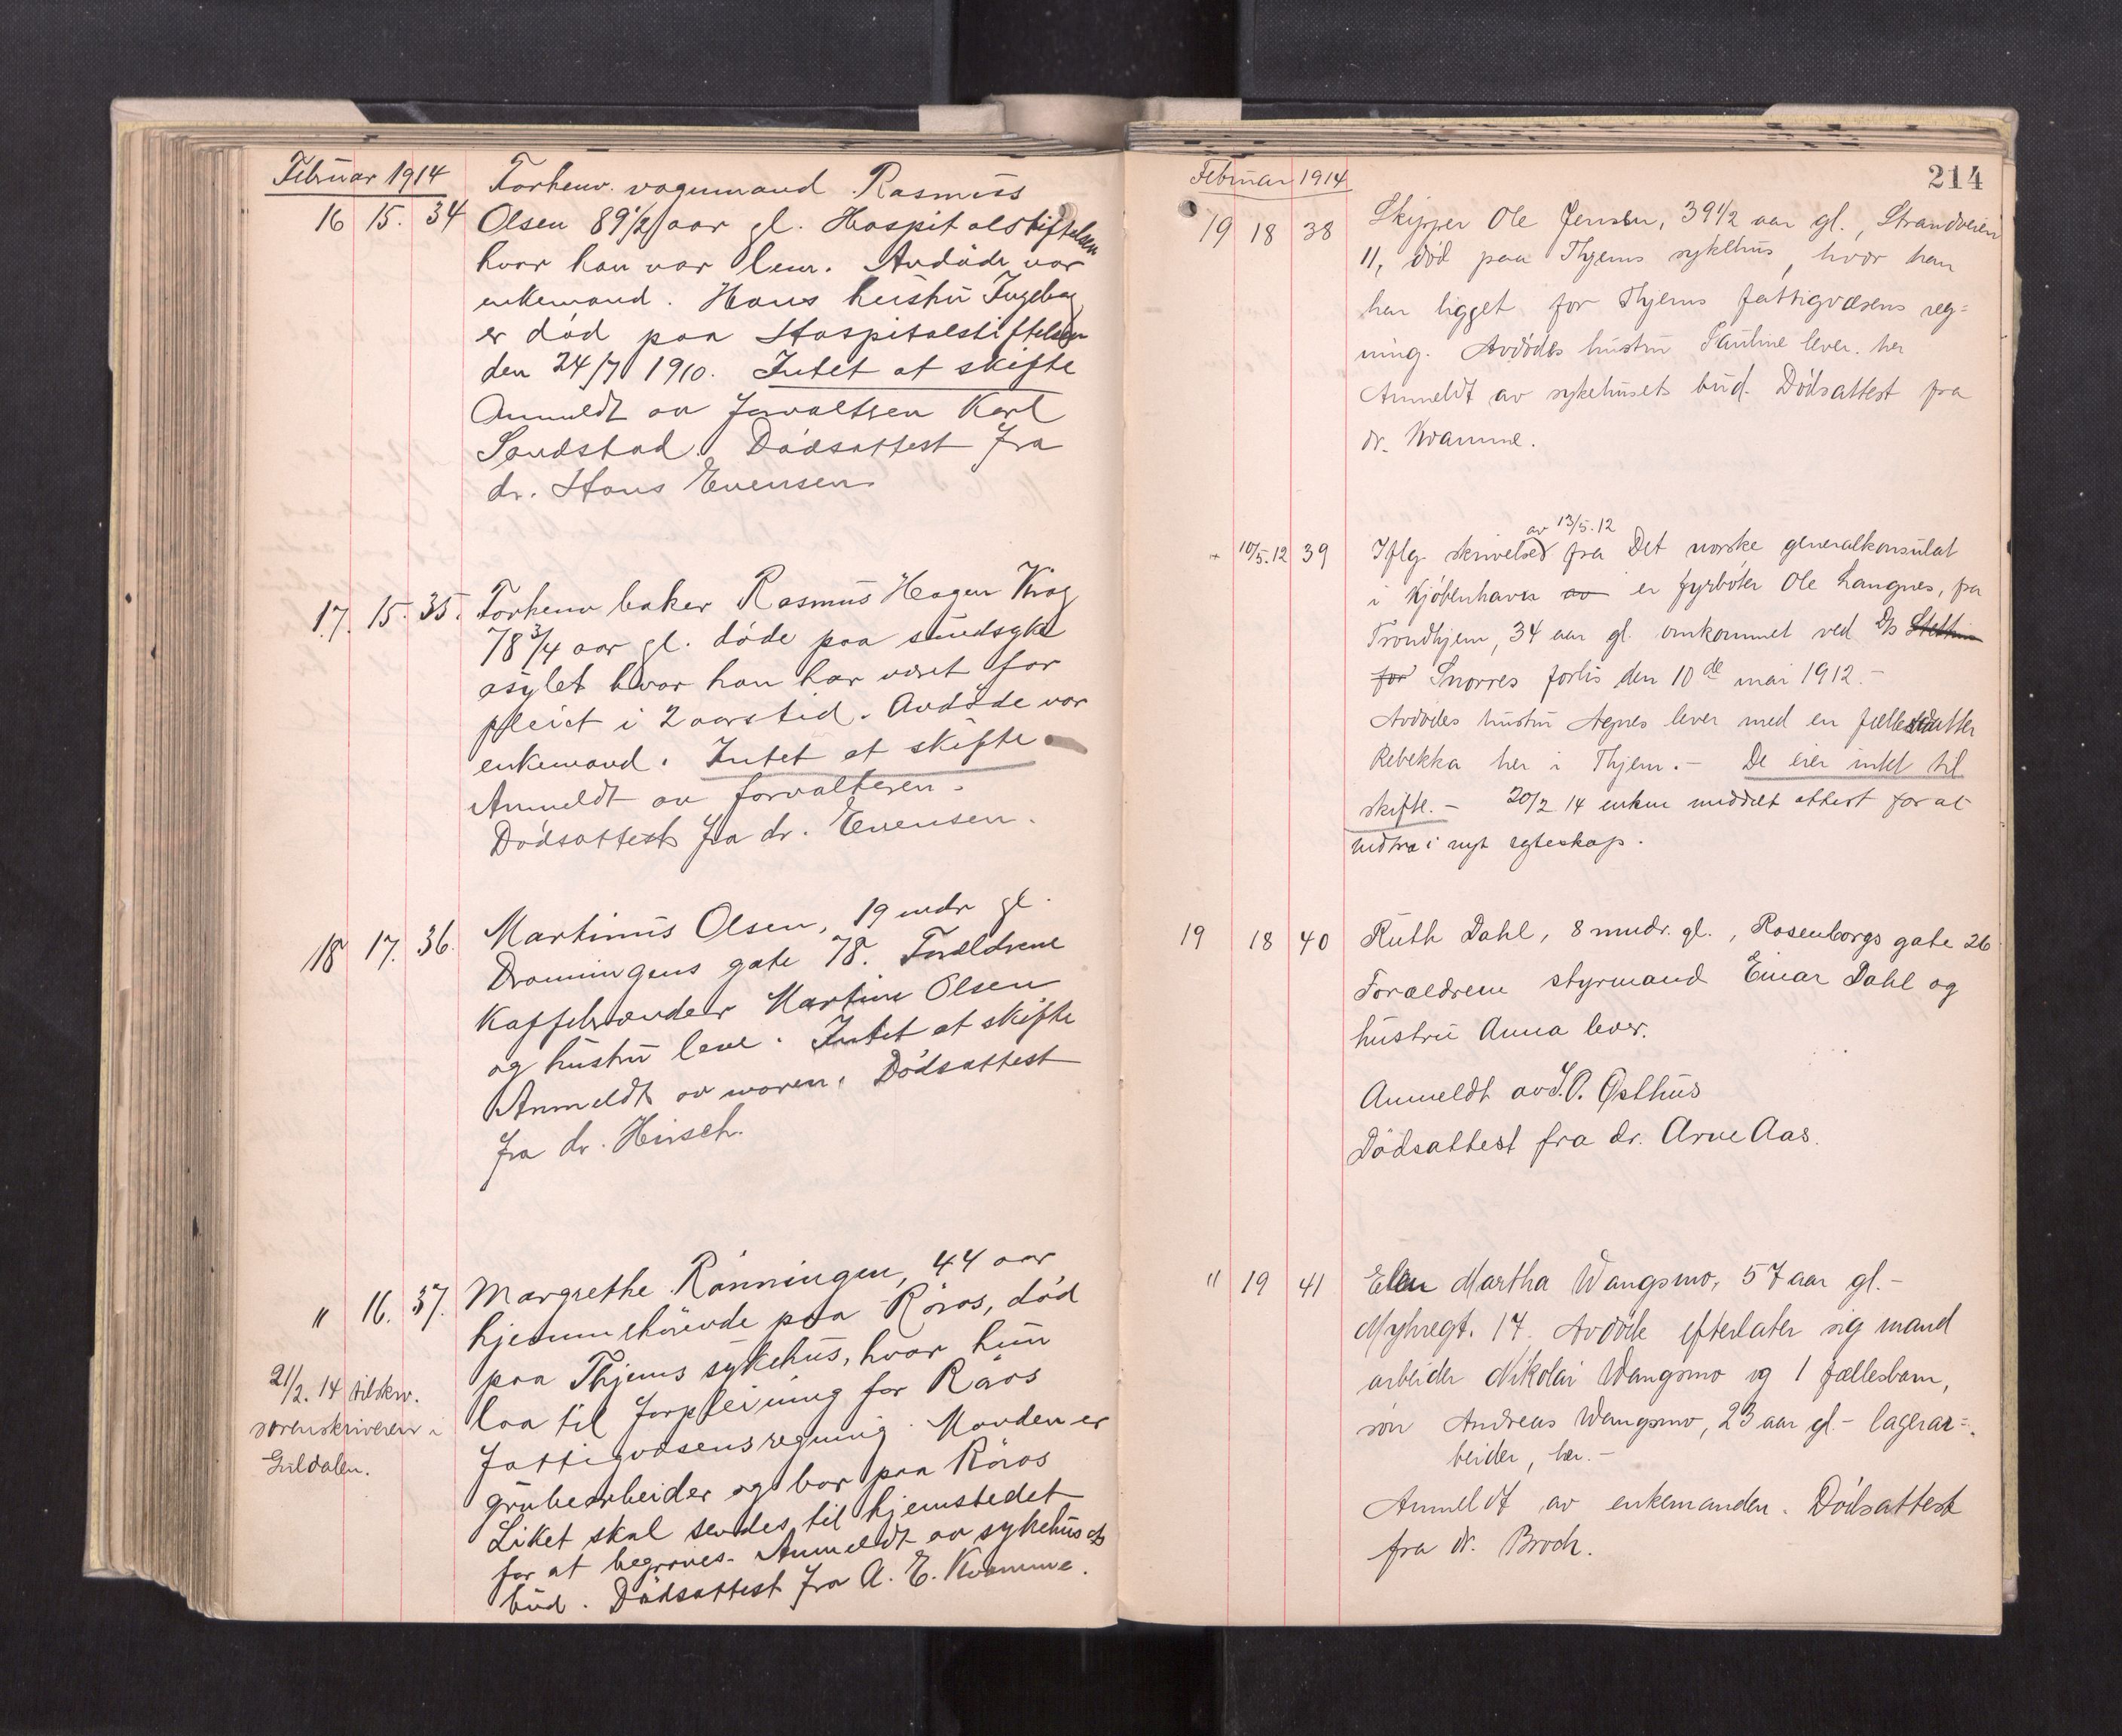 Februar 1914
Forhenv. vognmand Rasmus
16 15. 34 Olsen 89 1/2 aar gl. Hospitalstiftelsen
hvor han var lem. Avdöde var
enkemand. Hans hustru Ingeborg
er död paa Hospitalstiftelsen
den 24/7 1910. Intet at skifte
Anmeldt av forvaltren Karl
Sandstad. Dödsattest fra
dr. Hans Evensen
17. 15. 35. Forhenv baker Rasmus Hagen Krog
78 3/4 aar gl. döde paa sindsyke
asylet hvor han har været for
pleiet i 2 aars tid. Avdöde var
enkemand. Intet at skifte
Anmeldt av forvalteren.
Dödsattest fra dr. Evensen.
18 17. 36. Martinus Olsen, 19 mdr gl.
Dronningens gate 78. Forældrene
Kaffebrænder Martin Olsen
og hustru leve. Intet at skifte
Anmeldt av moren. Dödsattest
fra dr. Hirsch.
" 16. 37. Margrethe Rönningen, 44 aar
hjemmehörende paa Röros, död
paa Thjems sykehus, hvor hun
laa til forpleining for Röros
fattigvæsens regning. Manden er
grubearbeider og bor paa Röros
Liket skal sendes til hjemstedet
for at begraves. Anmeldt av sykehusets
bud. Dödsattest fra A. E. Kvamme.
21/2. 14 tilskr.
sorenskriveren i
Guldalen.
Februar 1914
214
19 18 38 Skipper Ole Jensen, 39 1/2 aar gl., Strandveien
11, död paa Thjems sykehus, hvor han
har ligget for Thjems fattigvæsens reg=
ning. Avdödes hustru Pauline lever. her
Anmeldt av sykehusets bud. Dödsattest fra
dr. Kvamme.
av 13/5.12
+ 10/5.12 39 Iflg. skrivelse fra Det norske generalkonsulat
i Kjöbenhavn av er fyrböter Ole Langnes, fra
Trondhjem, 34 aar gl. omkommet ved D/s Stettin
for Snorres forlis den 10de mai 1912.-
Avdödes hustru Agnes lever med en fællesdatter
Rebekka her i Thjem.- De eier intet til
skifte.- 20/2 14 enken meddelt attest for at
indtræ i nyt egteskap.
19 18 40 Ruth Dahl, 8 mndr. gl., Rosenborgs gate 26
Forældrene styrmand Einar Dahl og
hustru Anna lever.
Anmeldt av I. O. Østhus
Dödsattest fra dr. Arne Aas.
" 19 41 Elen Martha Wangsmo, 57 aar gl.-
Myhregt. 17. Avdöde efterlater sig mand
arbeider Nikolai Wangsmo og 1 fællesbarn,
sön Andreas Wangsmo, 23 aar gl.- lagerar=
beider, her.-
Anmeldt av enkemanden. Dödsattest
fra dr. Broch.